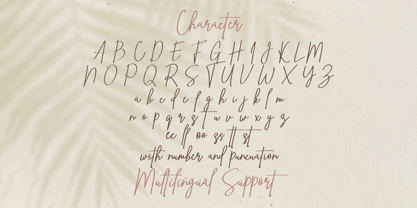 Character
A B C D E F G H I J K L M
N O P Q R S T U V W X Y Z
a b c d e f g h i j k l m
n o p q r s t u v w x y z
ee ll oo ss tt st
with number and puncuation
Multilingual Support